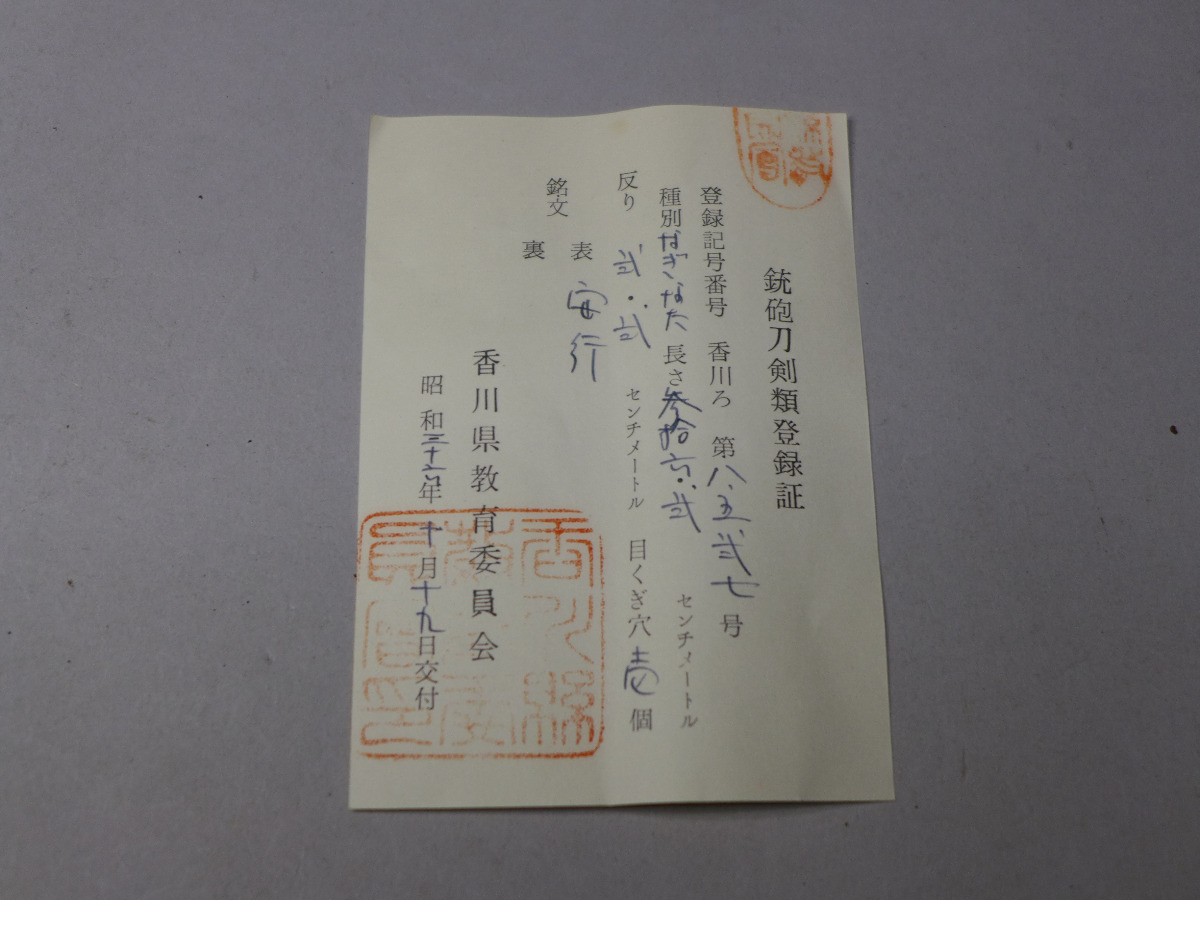 銃砲刀剣類登録証
登録記号番号 香川ろ 第八、五弐七号
種別 なぎなた 長さ 参拾六・弐 センチメートル
反り 弐・弐 センチメートル 目くぎ穴 壱 個
銘文 表 安行
裏
香川県教育委員会
昭和三十六年十月十九日交付